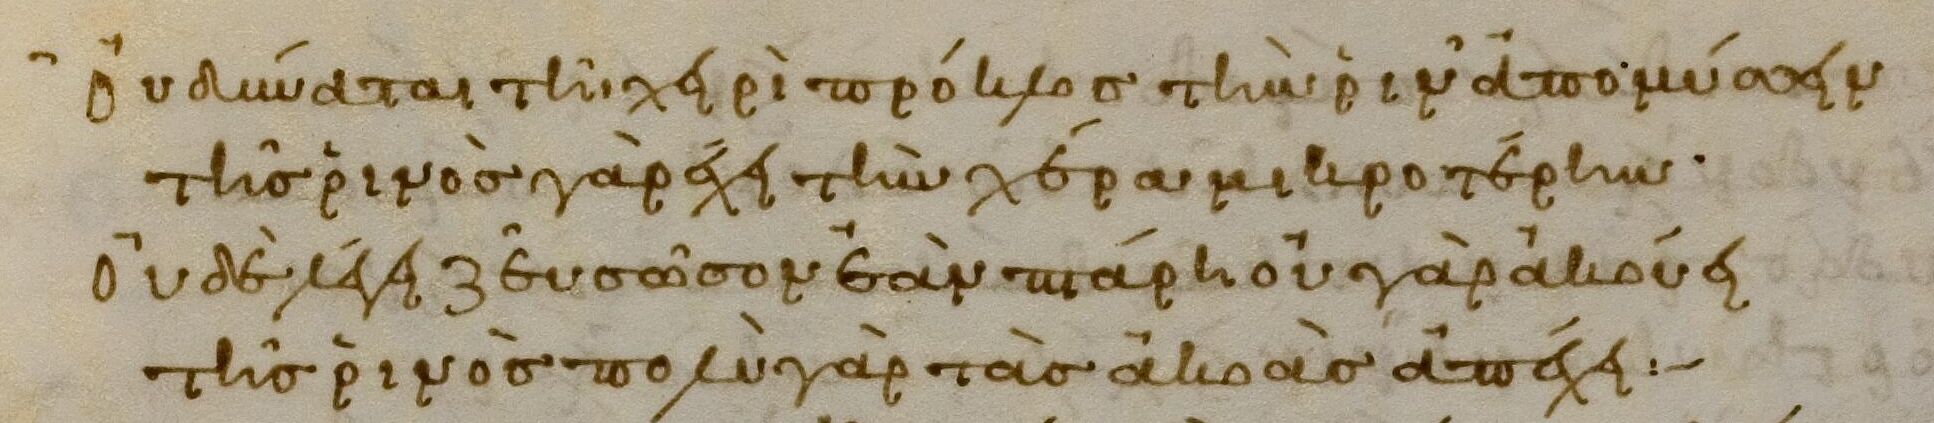 Οὐ δύναται τῇ χειρὶ πρόκλος τὴν ῥῖν ἀπομύσσειν
τῆς ῥινὸς γὰρ ἔχει τὴν χέρα μικροτέρην·
Οὐδὲ λέγει ζεῦ σῶσον ἐὰν πτάρῃ οὐ γὰρ ἀκούει
τῆς ῥινὸς πολὺ γὰρ τὰς ἀκοὰς ἀπέχει :~